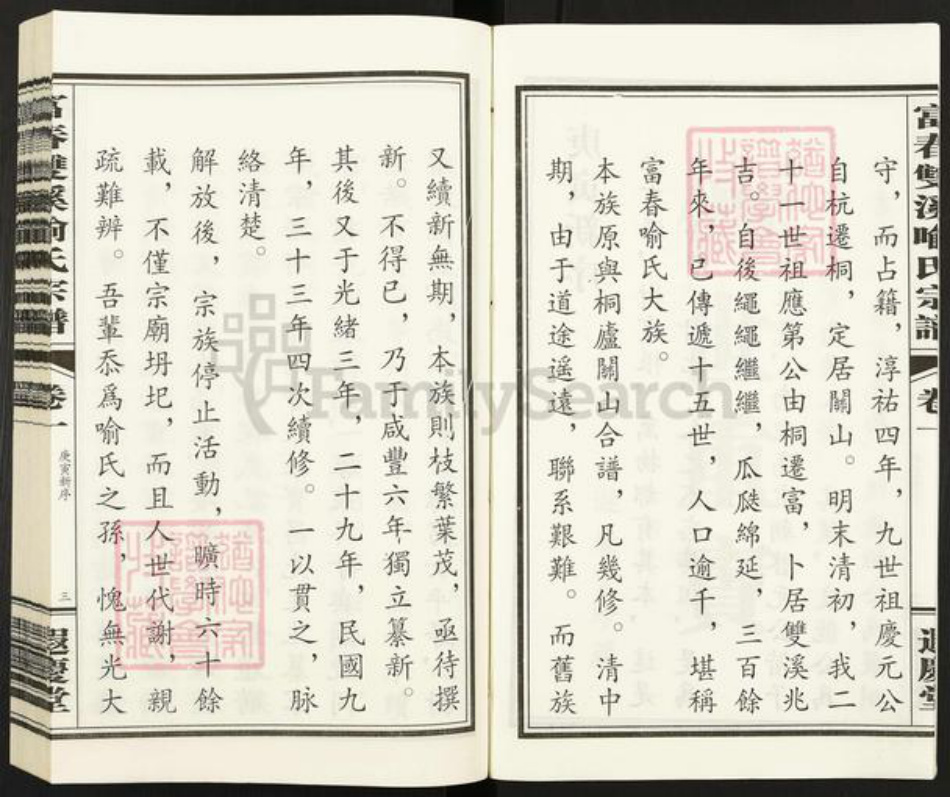 富春雙溪喻氏宗譜
卷一
遐慶堂
守，而占籍，淳祐四年，九世祖慶元公
自杭遷桐，定居關山。明末清初，我二
十一世祖應第公由桐遷富，卜居雙溪兆
吉。自後繩繩繼繼，瓜瓞綿延，三百餘
年來，已傳遞十五世，人口逾千，堪稱
富春喻氏大族。
本族原與桐廬關山合譜，凡幾修。清中
期，由于道途遥遠，聯系艱難。而舊族
又續新無期，本族則枝繁葉茂，亟待撰
新。不得已，乃于咸豐六年獨立纂新。
其後又于光緒三年，二十九年，民國九
年，三十三年四次續修。一以貫之，脉
絡清楚。
解放後，宗族停止活動，曠時六十餘
載，不僅宗廟坍圮，而且人世代謝，親
疏難辨。吾輩忝爲喻氏之孫，愧無光大
富春雙溪喻氏宗譜
卷一
庚寅新序
三
遐慶堂
FamilySearch